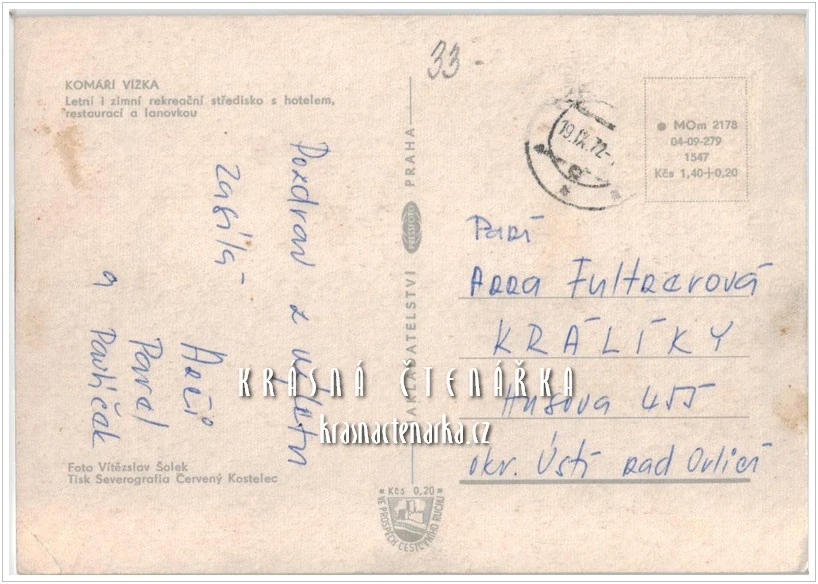 KOMÁŘÍ VÍŽKA
Letní i zimní rekreační středisko s hotelem,
restaurací a lanovkou
33-
Pozdrav z výletu
zasílá
Pavel
a Pavlíček
Foto Vítězslav Šolek
Tisk Severografia Červený Kostelec
NAKLADATELSTVÍ PRESSFOTO PRAHA
* Kčs 0,20 *
VE PROSPĚCH CESTOVNÍHO RUCHU
19.IX.72
MOm 2178
04-09-279
1547
Kčs 1,40+0,20
Paní
Anna Fultnerová
KRÁLÍKY
Husova 455
okr. Ústí nad Orlicí
KRÁSNÁ ČTENÁŘKA
krasnactenarka.cz